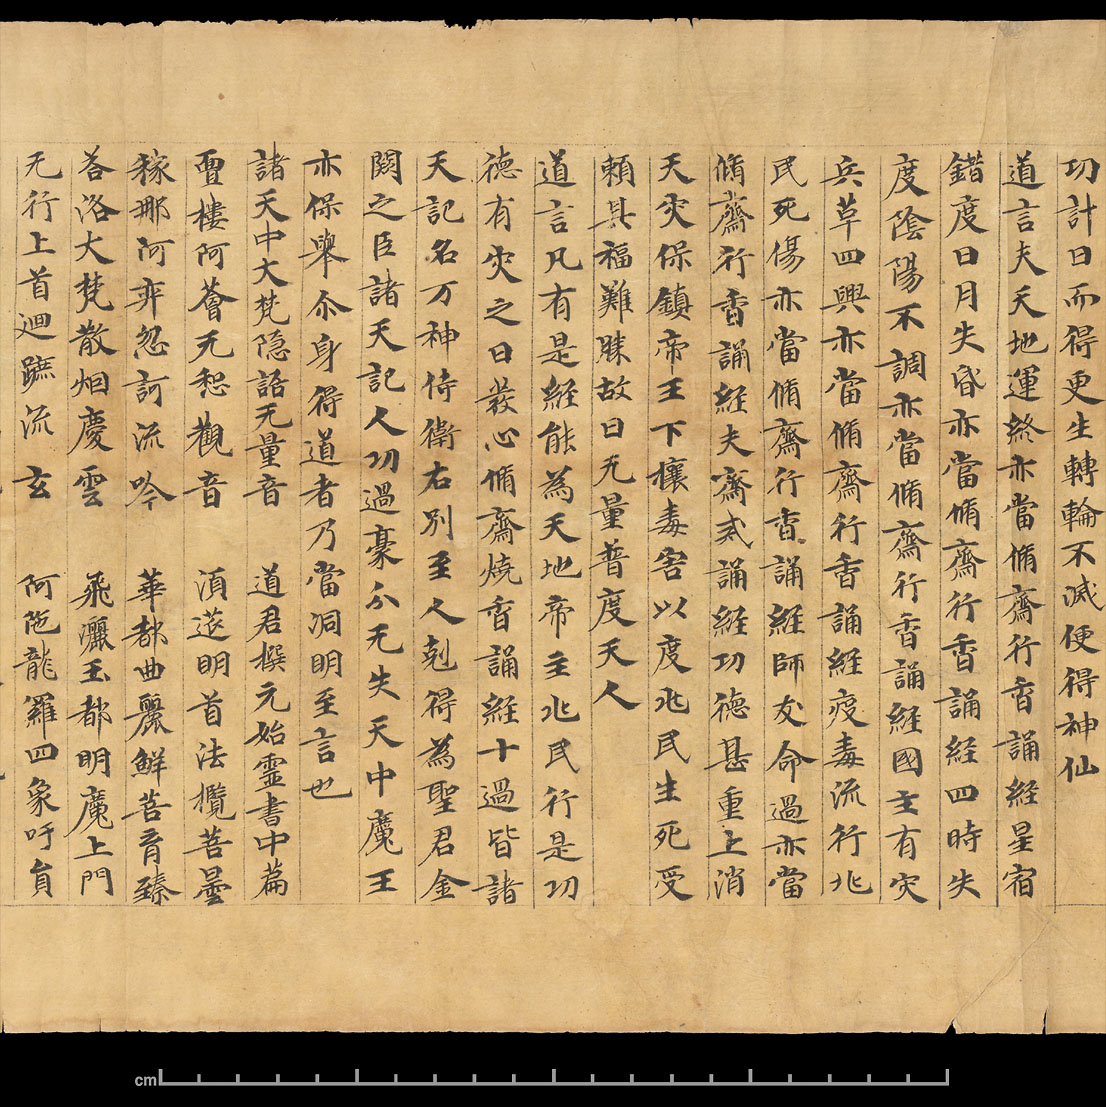 功計日而得更生轉輪不滅便得神仙
道言夫天地運終亦當脩齋行香誦經星宿
錯度日月失昏亦當脩齋行香誦經四時失
度陰陽不調亦當脩齋行香誦經國主有灾
兵革四興亦當脩齋行香誦經疫毒流行兆
民死傷亦當脩齋行香誦經師友命過亦當
脩齋行香誦經夫齋戒誦經功德甚重上消
天灾保鎮帝王下攘毒害以度兆民生死受
頼其福難勝故曰无量普度天人
道言凡有是經能為天地帝主兆民行是功
徳有灾之日發心脩齋燒香誦經十過皆諸
天記名万神侍衛右別至人剋得為聖君金
闕之臣諸天記人功過豪分无失天中魔王
亦保舉尒身得道者乃當洞明至言也
諸天中大梵隠語无量音 道君撰元始靈書中篇
亶樓阿薈无惒觀音 湏莚明首法攬菩曇
稼那阿弈忽訶流吟 華都曲麗鮮菩育臻
荅洛大梵散烟慶雲 飛灑玉都明魔上門
无行上首迴蹠流玄 阿陁龍羅四象吁負